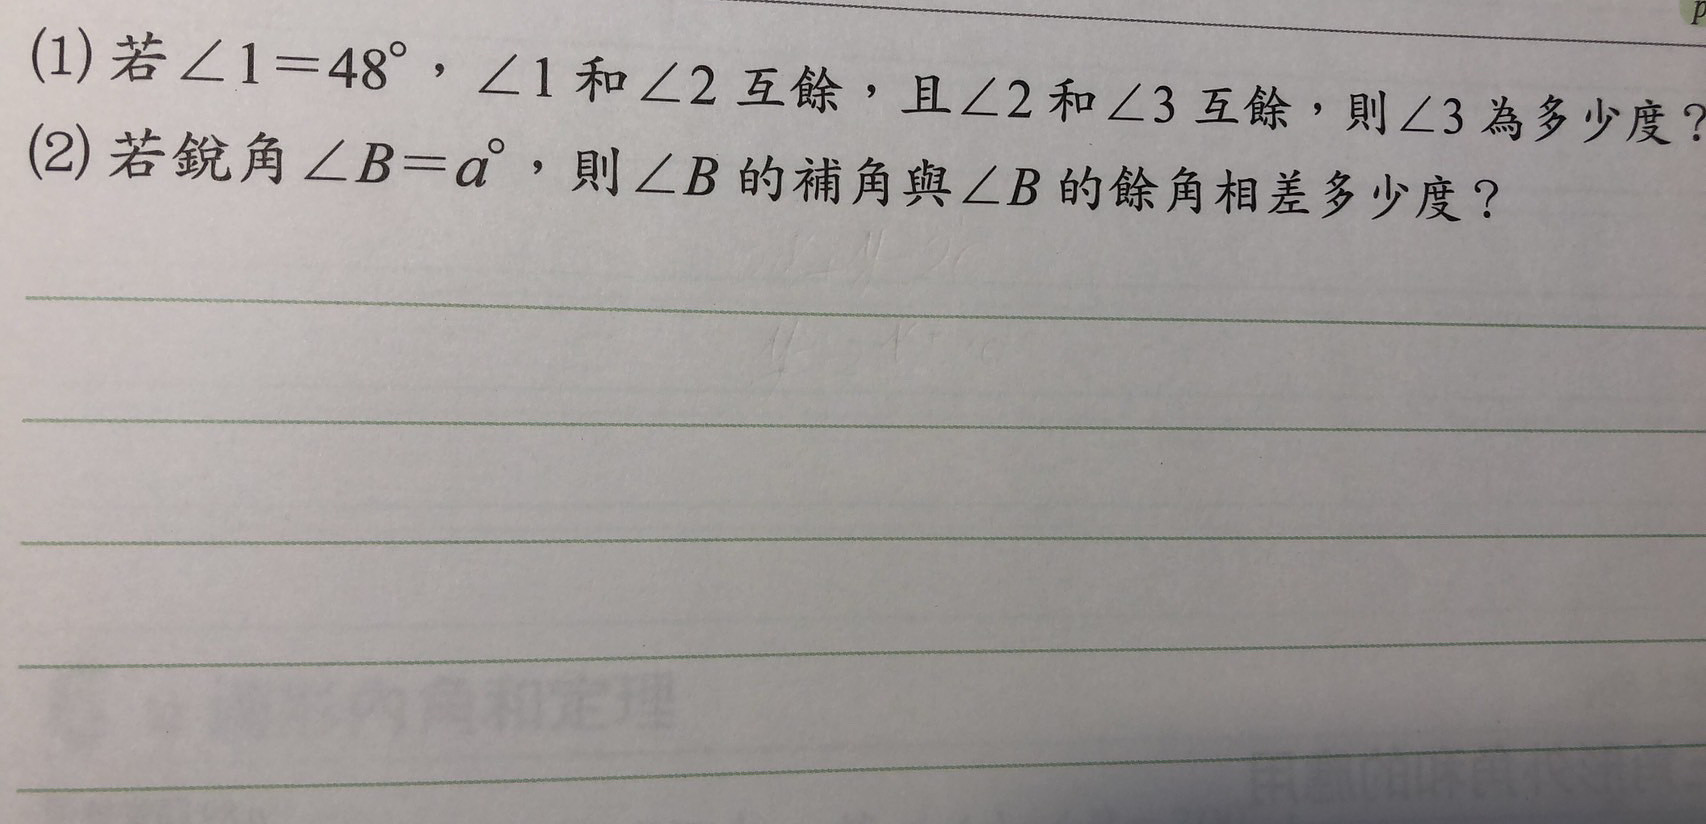 p
(1) 若∠1＝48°，∠1 和∠2 互餘，且∠2 和∠3 互餘，則∠3 為多少度？
(2) 若銳角∠B＝a°，則∠B 的補角與∠B 的餘角相差多少度？